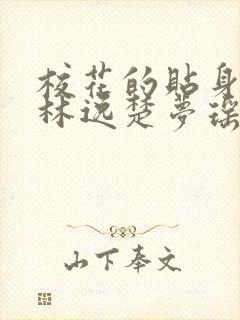 校花的贴身
林逸楚梦瑶
山下奉文